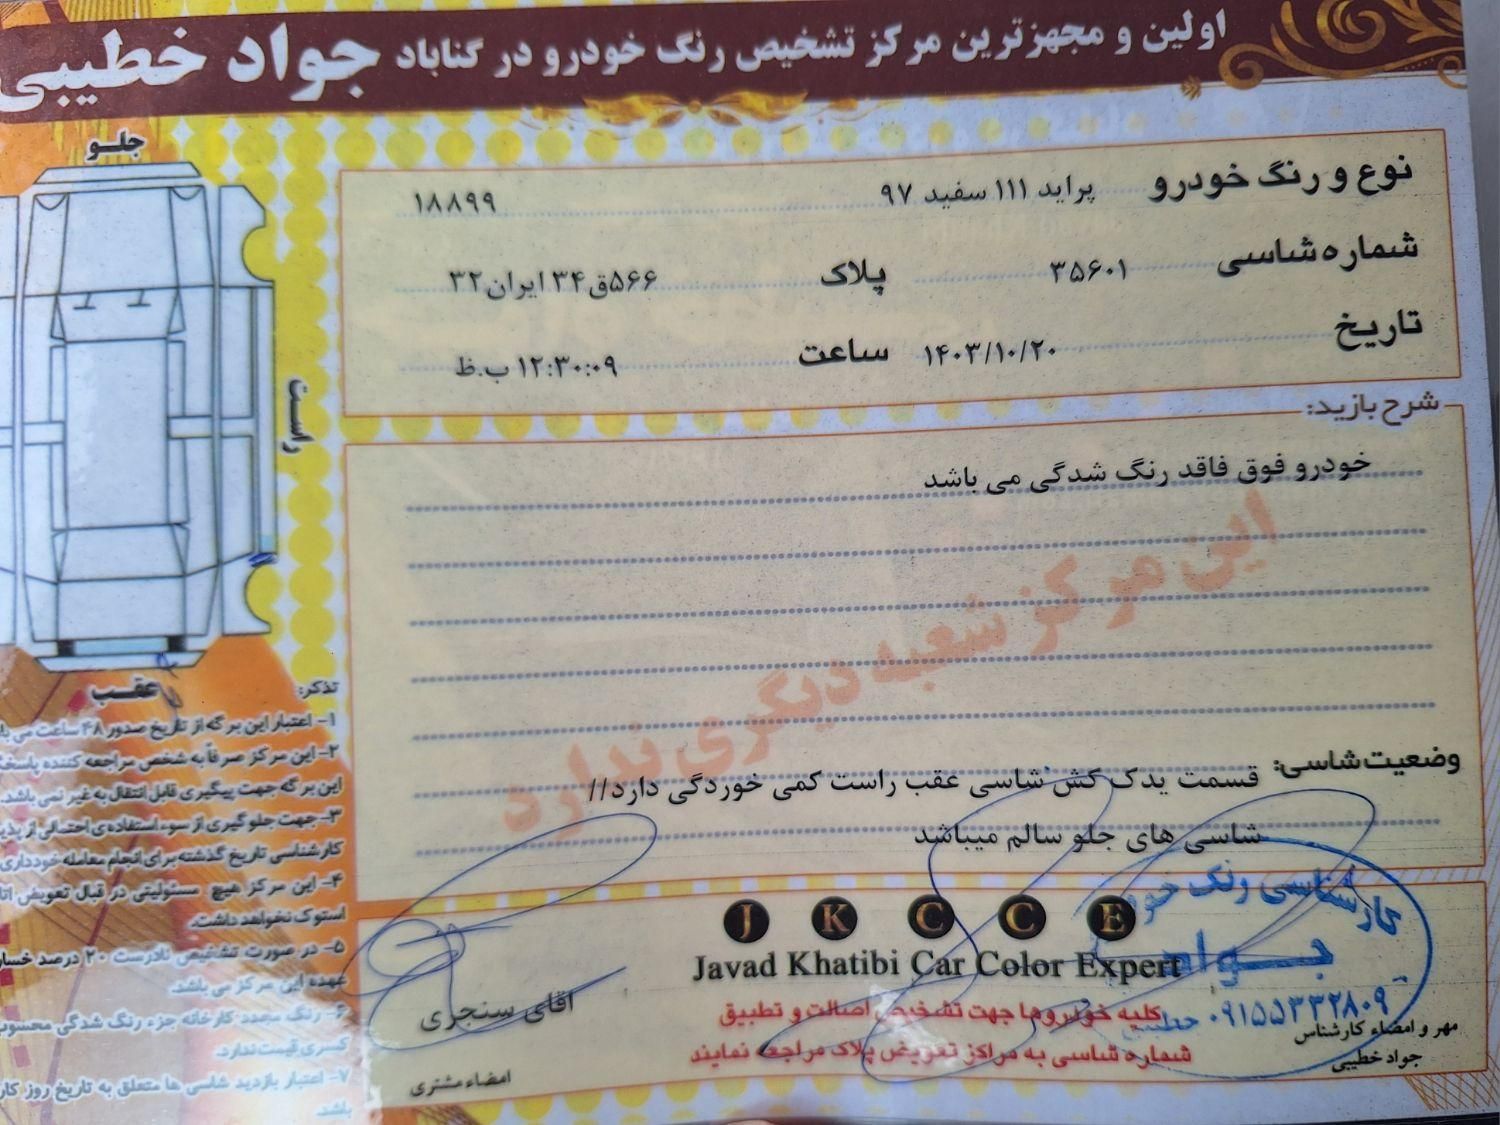 اولین و مجهزترین مرکز تشخیص رنگ خودرو در گناباد جواد خطیبی
جلو
راست
عقب
نوع و رنگ خودرو پراید ۱۱۱ سفید ۹۷ ۱۸۸۹۹
شماره شاسی ۳۵۶۰۱ پلاک ۵۶۶ق۳۴ ایران۳۲
تاریخ ۱۴۰۳/۱۰/۲۰ ساعت ۱۲:۳۰:۰۹ ب.ظ
شرح بازید:
خودرو فوق فاقد رنگ شدگی می باشد
این مرکز شعبه دیگری ندارد
وضعیت شاسی: قسمت یدک کش شاسی عقب راست کمی خوردگی دارد//
شاسی های جلو سالم میباشد
تذکر:
۱- اعتبار این برگه از تاریخ صدور ۴۸ ساعت می
۲- این مرکز صرفاً به شخص مراجعه کننده
این برگه جهت پیگیری قابل انتقال به غیر نمی باشد.
۳- جهت جلوگیری از سوء استفاده ی احتمالی از
کارشناسی تاریخ گذشته برای انجام معامله خودداری
۴- این مرکز هیچ مسئولیتی در قبال تعویض
استوک نخواهد داشت.
۵- در صورت تشخیص نادرست ۲۰ درصد
عهده این مرکز می باشد.
۶- رنگ مجدد کارخانه جزء رنگ شدگی محسوب
کسری قیمت ندارد.
۷- اعتبار بازدید شاسی ها متعلق به تاریخ روز
باشد.
J K C C E
Javad Khatibi Car Color Expert
کلیه خودروها جهت تشخیص اصالت و تطبیق
شماره شاسی به مراکز تعویض پلاک مراجعه نمایند
آقای سنجری
امضاء مشتری
کارشناسی رنگ
جواد
۰۹۱۵۵۳۳۲۸۰۹
خطیبی
مهر و امضاء کارشناس
جواد خطیبی